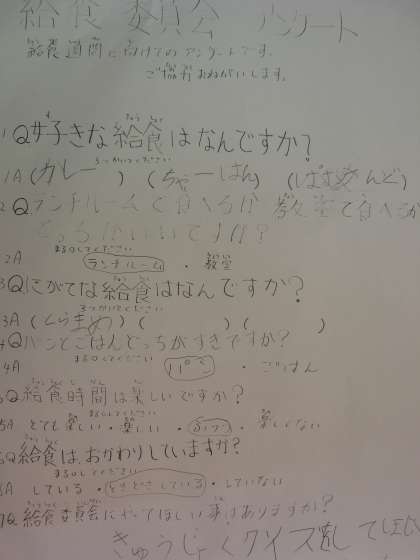 給食 委員会 アンケート
給食週間に向けてのアンケートです。
ご協力おねがいします。
1Q好きな給食はなんですか?
3つかいてください
1A (カレー) (ちゃーはん) ()
2Qランチルームで食べるか 教室で食べるか
どっちがいいですか?
まる○してください
2A ランチルーム ・ 教室
3Qにがてな給食はなんですか?
3つかいてください
3A () () ()
4Qパンとごはんどっちがすきですか?
まる○してください
4A パン ・ ごはん
5Q給食時間は楽しいですか?
まる○してください
5A とても楽しい・楽しい・ふつう・楽しくない
6Q給食は、おかわりしていますか?
まる○してください
6A している・ときどきしている・していない
7Q給食委員会にやってほしい事はありますか?
きゅうしょくクイズをしてほしい